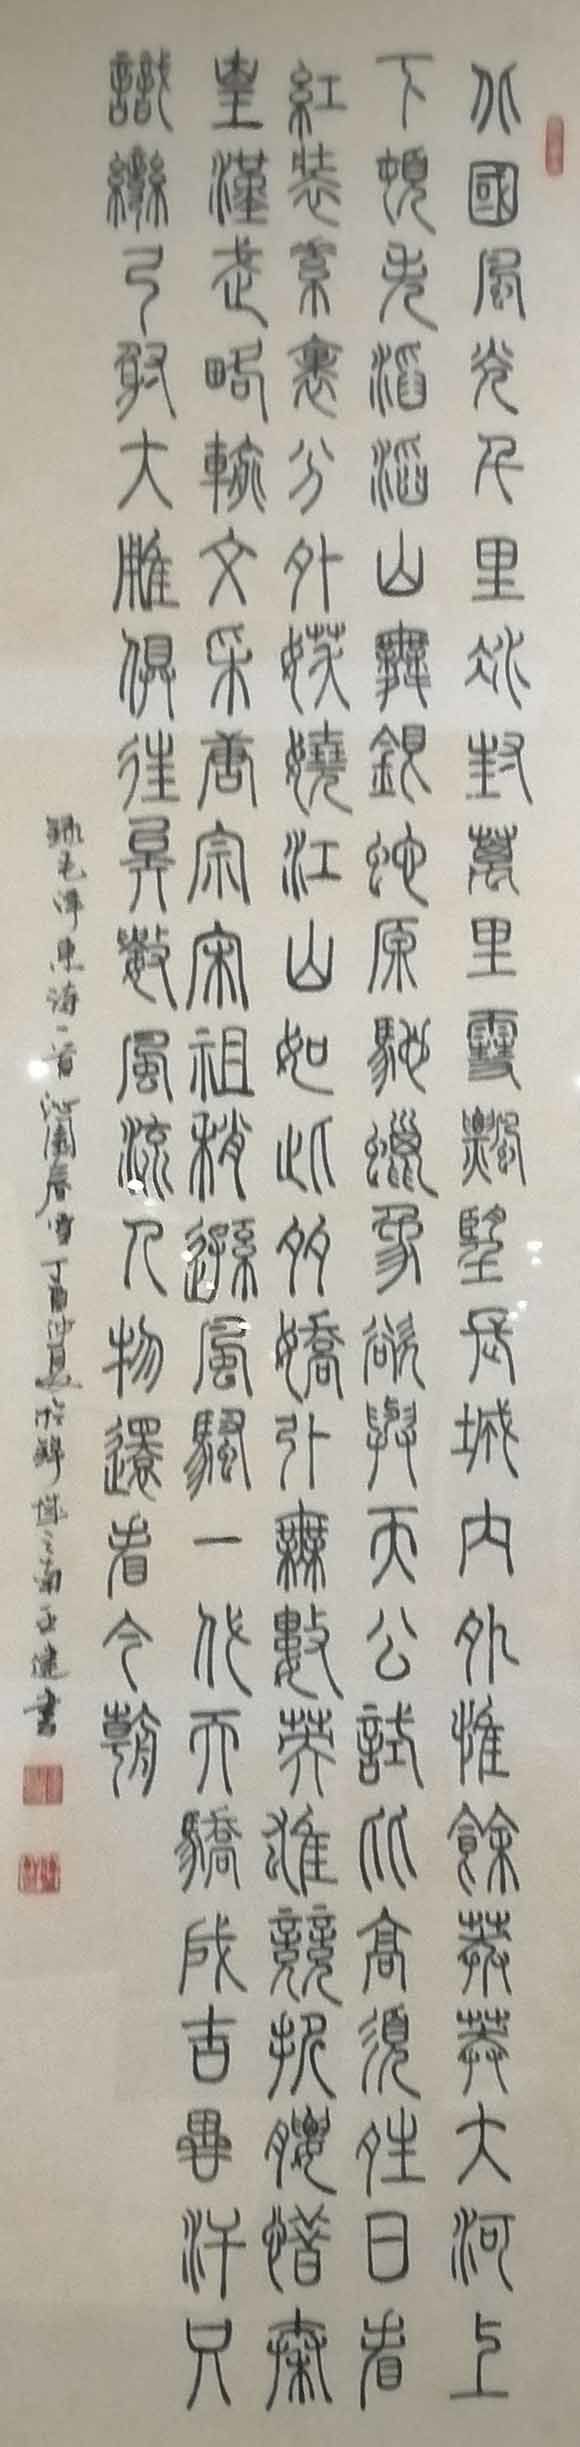 北國風光千里冰封萬里雪飄望長城內外惟餘莽莽大河上
下頓失滔滔山舞銀蛇原馳蠟象欲與天公試比高須晴日看
紅裝素裹分外妖嬈江山如此多嬌引無數英雄競折腰惜秦
皇漢武略輸文采唐宗宋祖稍遜風騷一代天驕成吉思汗只
識彎弓射大雕俱往矣數風流人物還看今朝
錄毛澤東詞一首沁園春雪丁酉沙月於錦城之南王建書